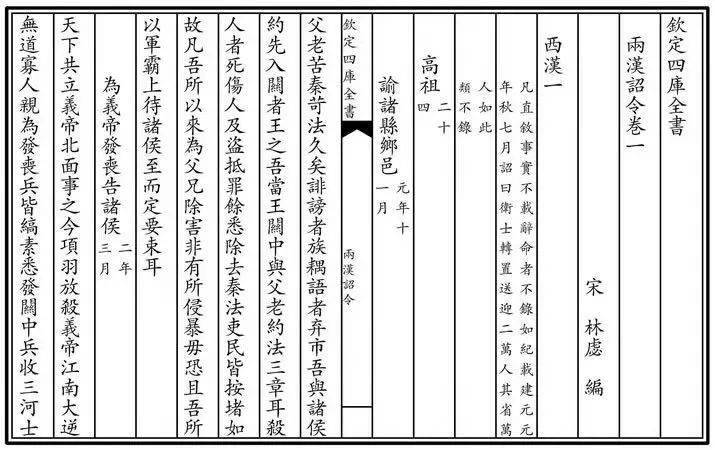 欽定四庫全書
兩漢詔令卷一
宋 林虙 編
西漢一
凡直敘事實不載辭命者不錄如紀載建元元
年秋七月詔曰衛士轉置送迎二萬人其省萬
人如此
類不錄
高祖 二十四
諭諸縣鄉邑 元年十一月
欽定四庫全書 兩漢詔令
父老苦秦苛法久矣誹謗者族耦語者弃市吾與諸侯
約先入關者王之吾當王關中與父老約法三章耳殺
人者死傷人及盜抵罪餘悉除去秦法吏民皆按堵如
故凡吾所以來為父兄除害非有所侵暴毋恐且吾所
以軍霸上待諸侯至而定要束耳
為義帝發喪告諸侯 二年三月
天下共立義帝北面事之今項羽放殺義帝江南大逆
無道寡人親為發喪兵皆縞素悉發關中兵收三河士